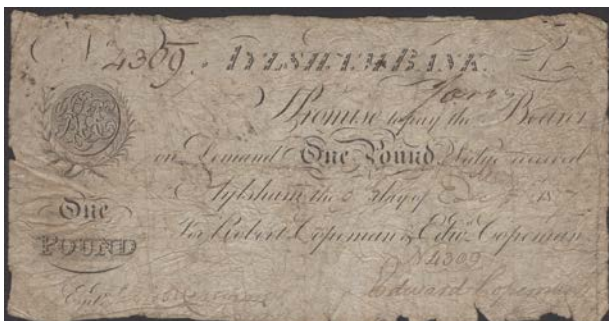 N 4309. AYLSHAM BANK £1
I Promise to pay the Bearer
on Demand One Pound Value received
Aylsham the day of
One
For Robert Copeman & Edwd. Copeman
POUND
N 4309
Entd. Edward Copeman